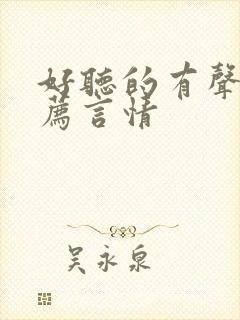 好聽的有聲
薦言情
吳永泉